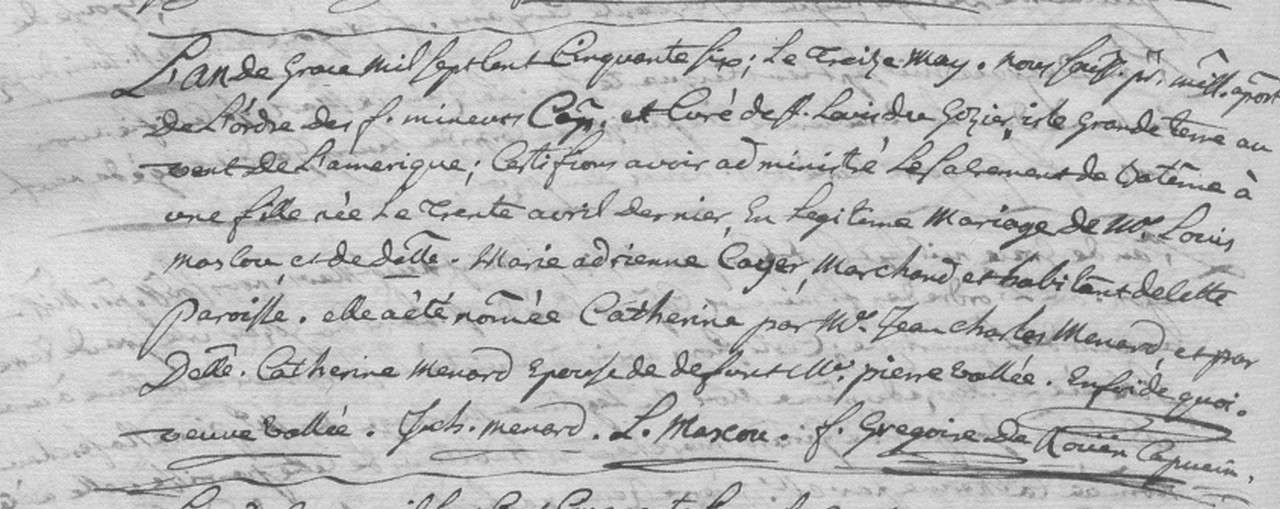 L'an de Grace mil sept Cent Cinquante six; Le Treize May. nous souss. pr. miss. apost
De L'ordre des f. mineurs Cap. et Curé de St. Louis du Gozier, isle Grande terre au
vent de L'amerique; Certifions avoir administré Le Sacrement de Batême à
une fille née Le Trente avril dernier, En Legitime Mariage de Mr. Louis
mascou, et de delle. Marie adrienne Cayer, Marchand, et habitant de Cette
Paroisse. elle a été nomée Catherine par Mr. Jean charles Menard, et par
Delle. Catherine Menard Epouse de defunt Mr. pierre vallée. En foi de quoi.
veuve vallée. J. ch. menard. L. Mascou. f. Gregoire de Rouën Capucin.